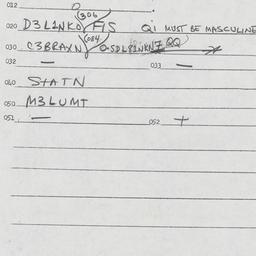 012
306
020 D3L1NKO FIS Q1 MUST BE MASCULINE
084
030 C3BRAXN QQ
032 — 033 —
040 STATN
050 M3LUMT
051 — 052 +